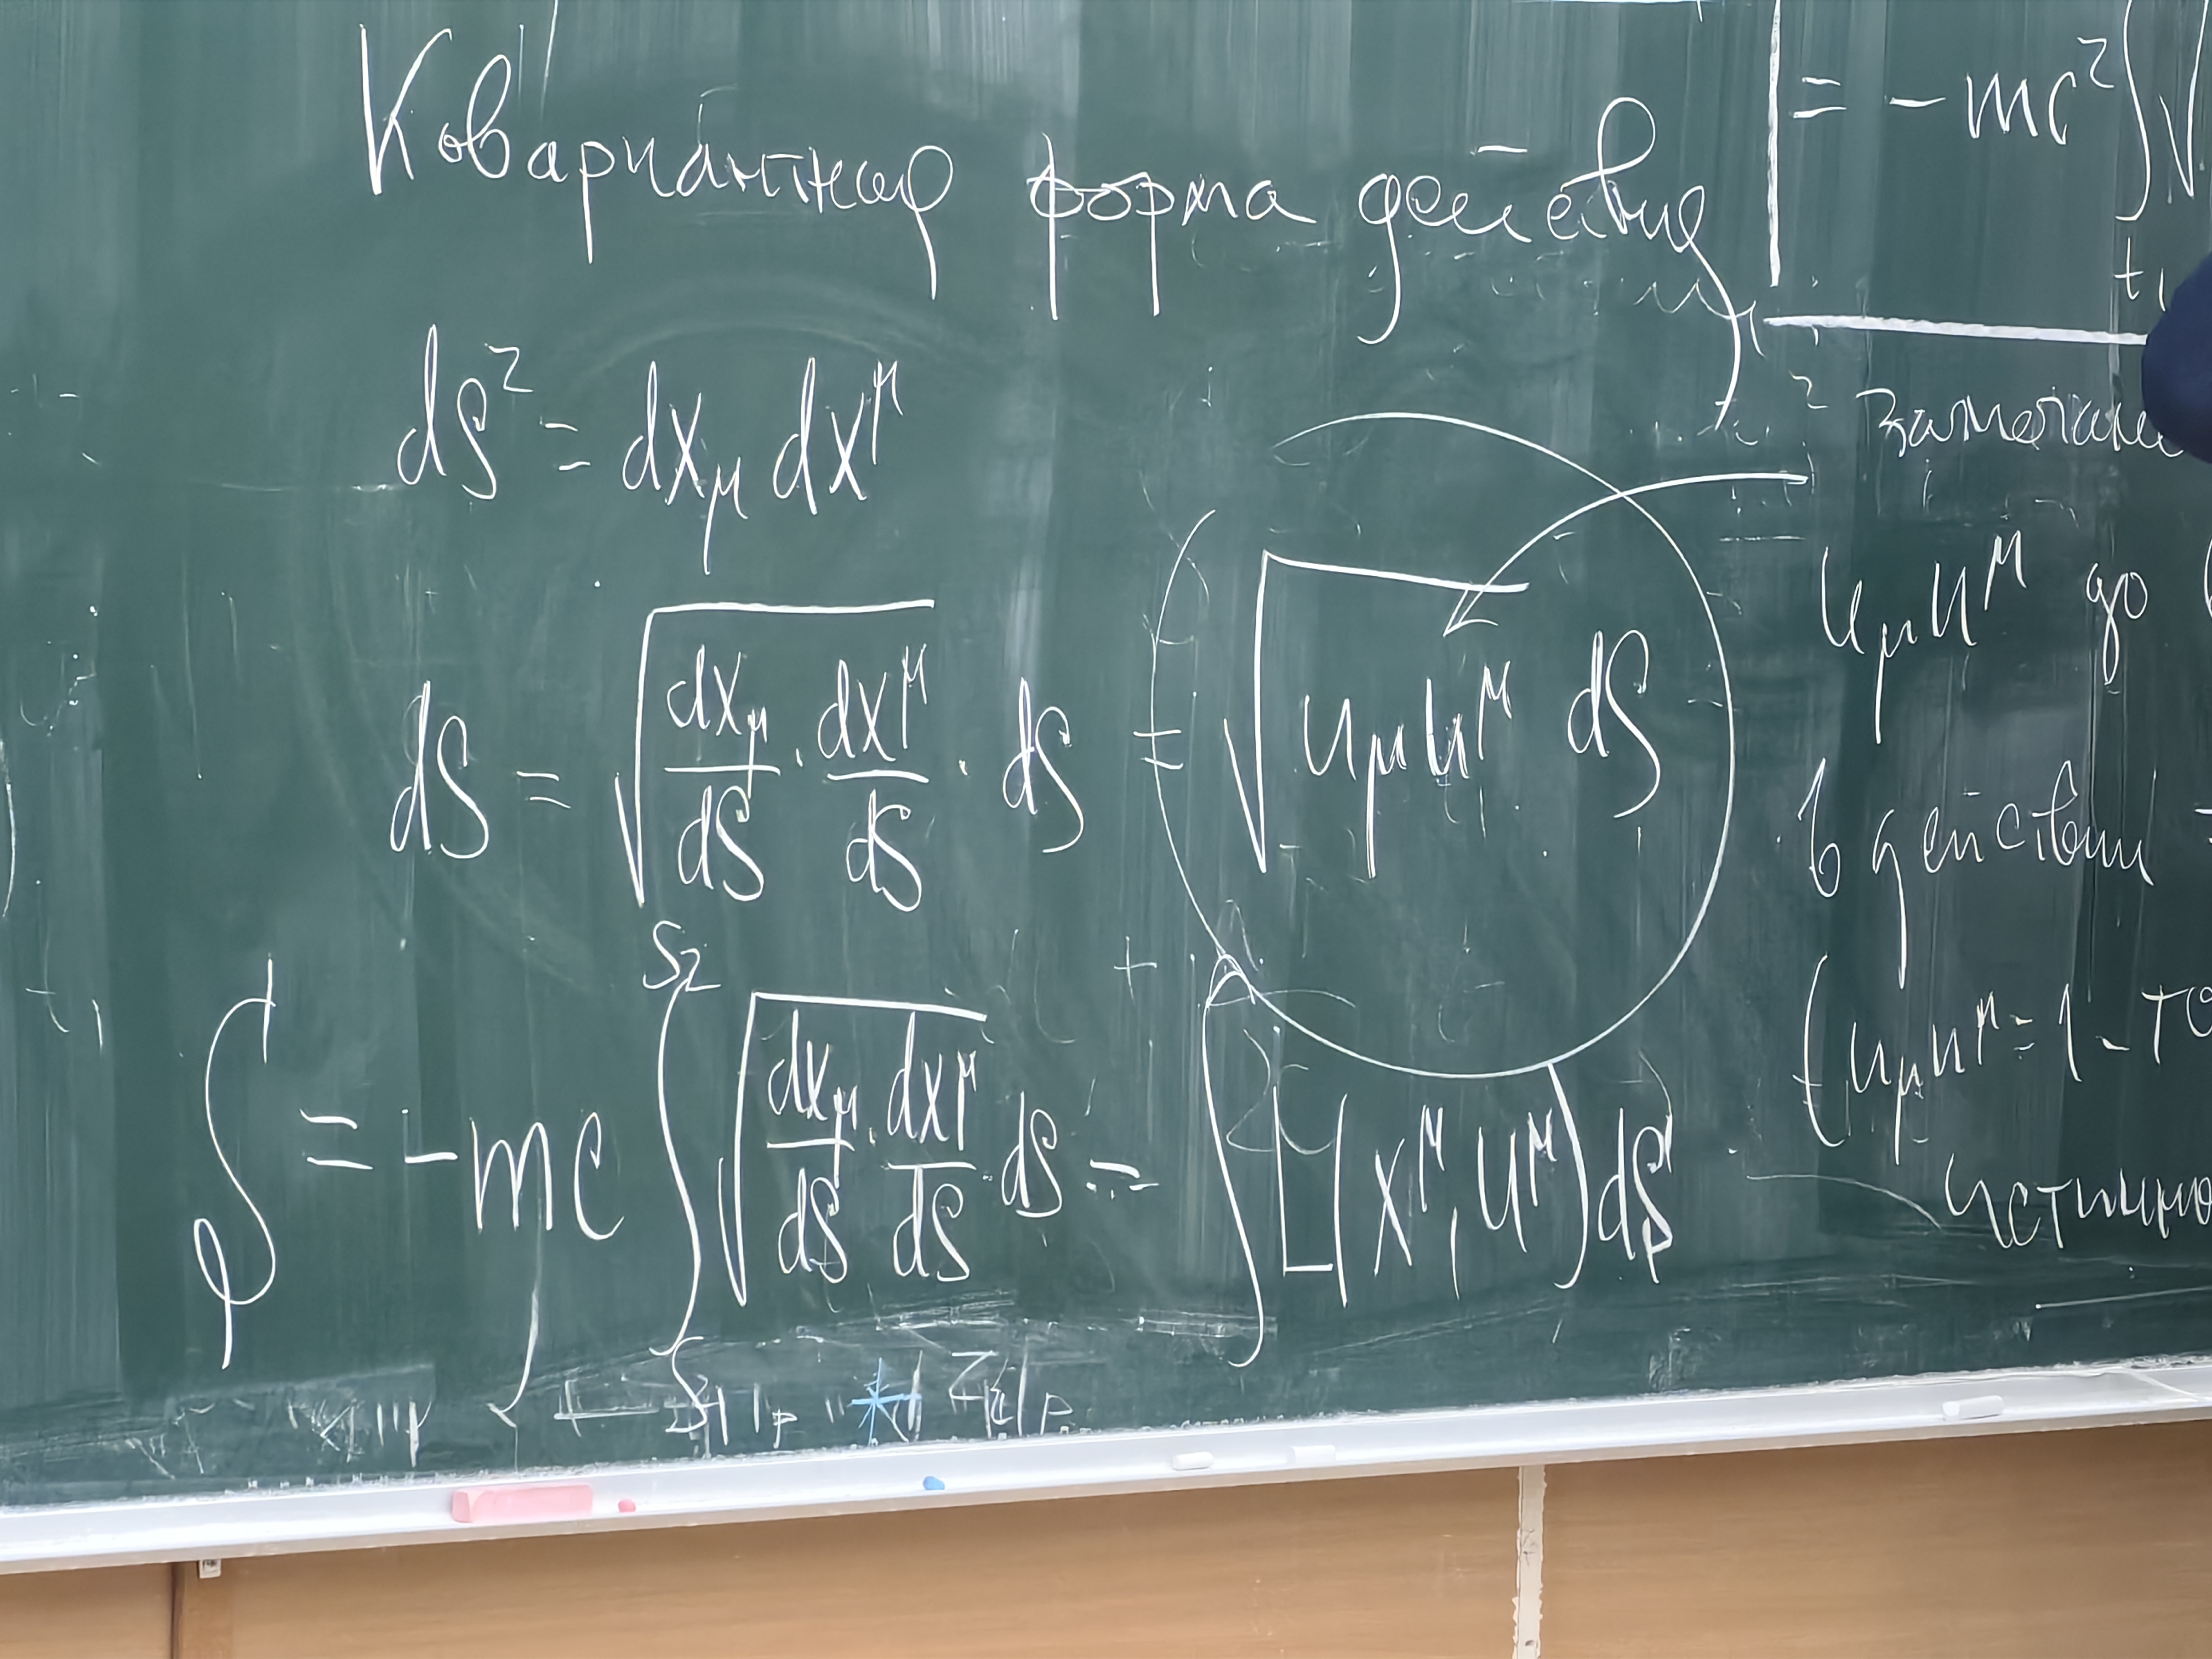 Ковариантная форма действия
ds² = dx_μ dx^μ
dS = √(dx_μ/dS · dx^μ/dS) · dS = √(u_μ u^μ) dS
S = -mc ∫_{S₁}^{S₂} √(dx_μ/dS · dx^μ/dS) · dS = ∫ L(x^μ, u^μ) ds
= -mc² ∫ √
t₁
u_μ u^μ до
в действии
(u_μ u^μ = 1 -